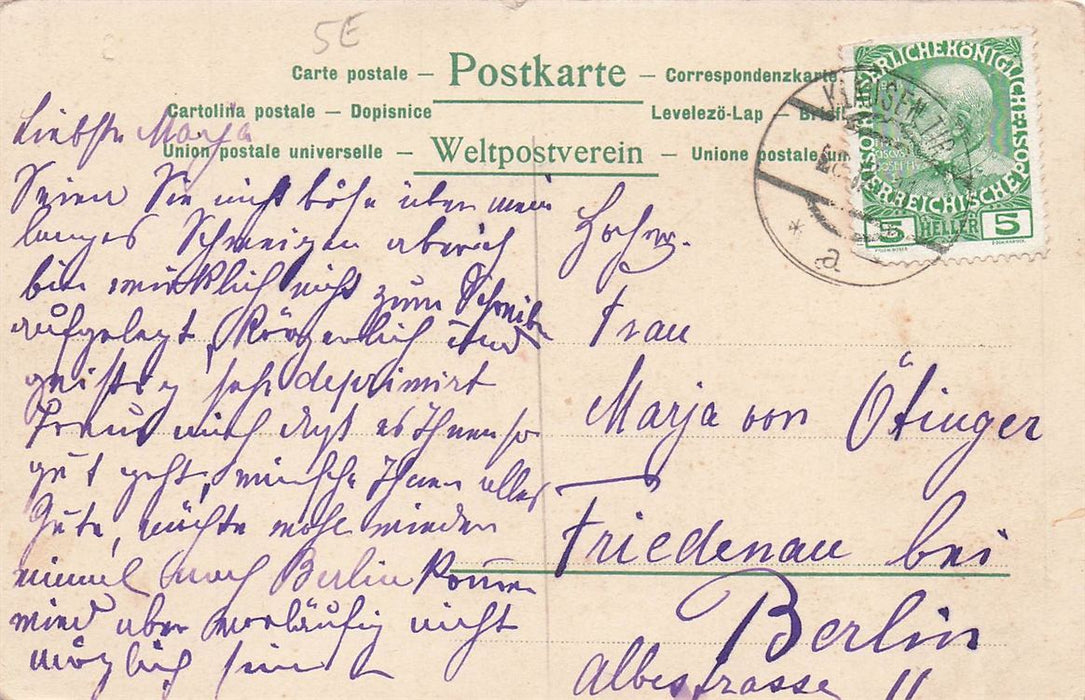 5E
Carte postale — Postkarte — Correspondenzkarte
Cartolina postale — Dopisnice Levelező-Lap —
Union postale universelle — Weltpostverein — Unione postale un
KAISERLICHE KÖNIGLICHE ÖSTERREICHISCHE POST
5 HELLER 5
KLAUSEN
* a
Liebste Marja
Seien Sie nicht böse über mein
langes Schweigen aber ich
bin wirklich nicht zum Schreiben
aufgelegt, körperlich und
geistig sehr deprimirt
Freue mich daß es Ihnen so
gut geht, wünsche Ihnen alles
Gute, möchte wohl wieder
einmal nach Berlin kommen
wird aber vorläufig nicht
möglich sein
Hochw.
Frau
Marja von Ötinger
Friedenau bei
Berlin
Albestrasse 11